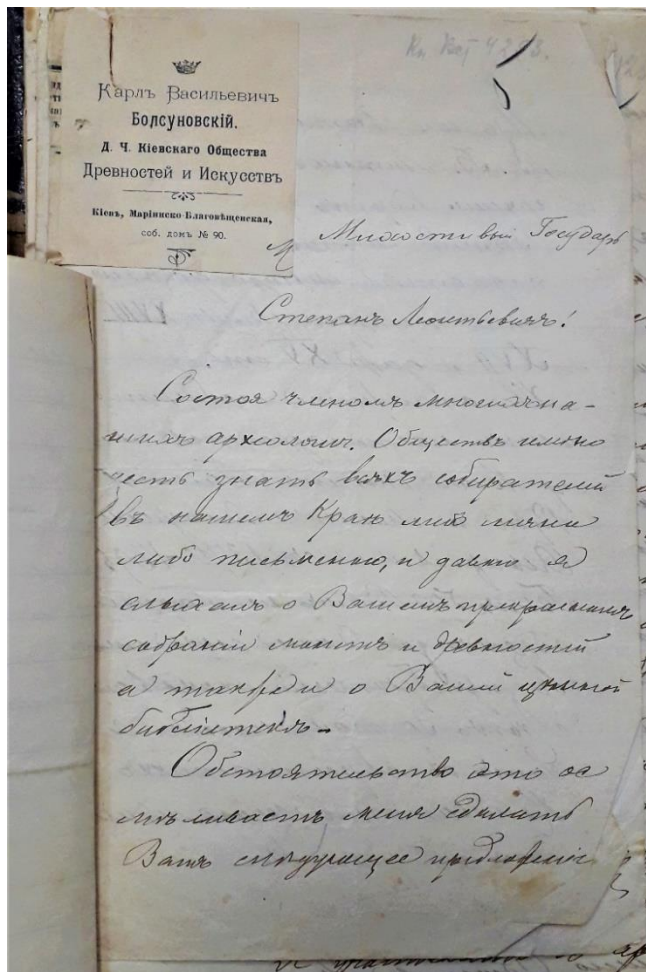 Карлъ Васильевичъ
Болсуновскій.
Д. Ч. Кіевскаго Общества
Древностей и Искусствъ
Кіевъ, Маріинско-Благовѣщенская,
соб. домъ № 90.
Милостивый Государь
Степанъ Леонтьевичъ!
Состоя членомъ многихъ на-
шихъ археолог. Обществъ имѣю
честь знать всѣхъ собирателей
въ нашемъ Краѣ либо лично
либо письменно, и давно я
слыхалъ о Вашемъ прекрасномъ
собраніи монетъ и древностей
а также и о Вашей цѣнной
библіотекѣ.
Обстоятельство это ос
мѣливаетъ меня сдѣлать
Вамъ слѣдующее предложеніе